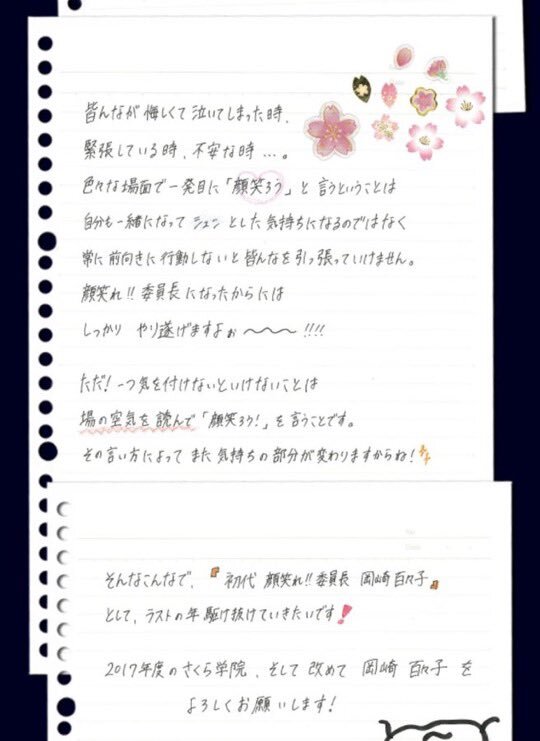 皆んなが悔しくて泣いてしまった時、
緊張している時、不安な時…。
色々な場面で一発目に「顔笑ろう」と言うということは
自分も一緒になってシュンとした気持ちになるのではなく
常に前向きに行動しないと皆んなを引っ張っていけません。
顔笑れ!!委員長になったからには
しっかり やり遂げますよぉ〜〜〜!!!!
ただ!一つ気を付けないといけないことは
場の空気を読んで「顔笑ろう!」を言うことです。
その言い方によってまた気持ちの部分が変わりますからね!
そんなこんなで、『初代 顔笑れ!!委員長 岡崎百々子』
として、ラストの年駆け抜けていきたいです!
2017年度のさくら学院、そして改めて 岡崎百々子を
よろしくお願いします!